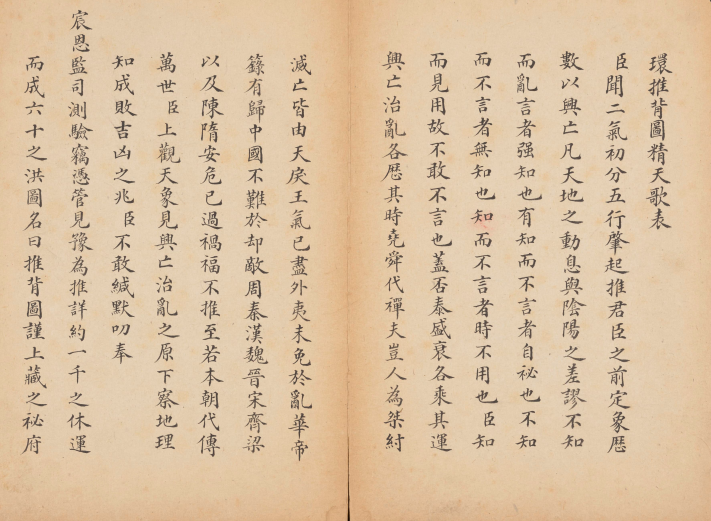 環推背圖精天歌表
臣聞二氣初分五行肇起推君臣之前定象歴
數以興亡凡天地之動息與陰陽之差謬不知
而亂言者强知也有知而不言者自祕也不知
而不言者無知也知而不言者時不用也臣知
而見用故不敢不言也蓋否泰盛衰各乘其運
興亡治亂各歴其時堯舜代禪夫豈人為桀紂
滅亡皆由天戾王氣已盡外夷未免於亂華帝
籙有歸中國不難於却敵周秦漢魏晉宋齊梁
以及陳隋安危已過禍福不推至若本朝代傳
萬世臣上觀天象見興亡治亂之原下察地理
知成敗吉凶之兆臣不敢緘默叨奉
宸恩監司測驗竊憑管見豫為推詳約一千之休運
而成六十之洪圖名曰推背圖謹上藏之祕府